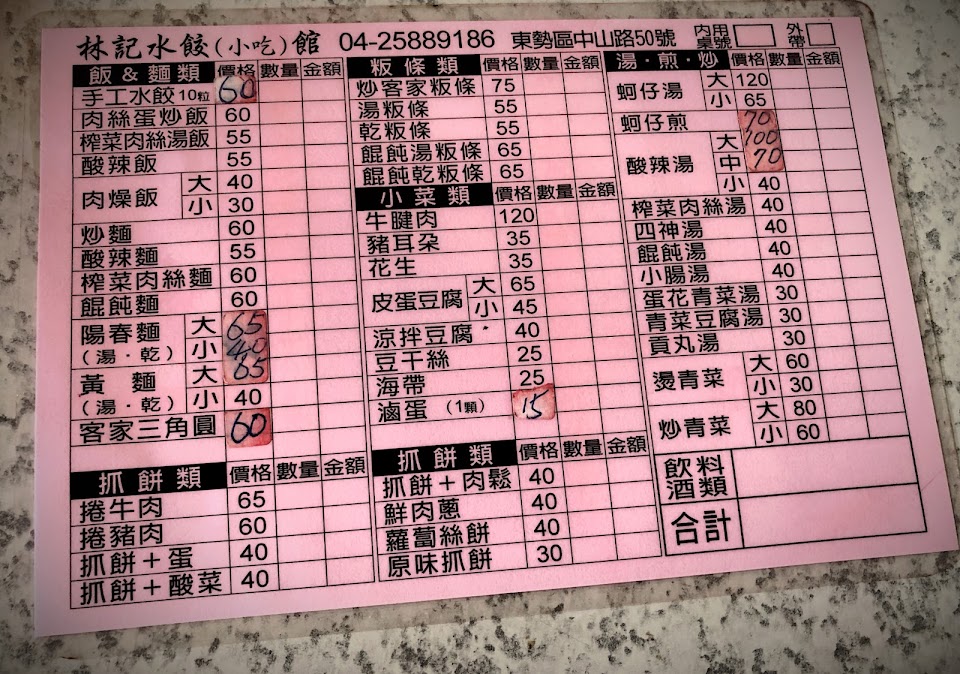 林記水餃(小吃)館 04-25889186 東勢區中山路50號 內用桌號 外帶
飯&麵類 價格 數量 金額
手工水餃10粒 60
肉絲蛋炒飯 60
榨菜肉絲湯飯 55
酸辣飯 55
肉燥飯 大 40
小 30
炒麵 60
酸辣麵 55
榨菜肉絲麵 60
餛飩麵 60
陽春麵(湯.乾) 大 65
小 40
黃麵(湯.乾) 大 65
小 40
客家三角圓 60
抓餅類 價格 數量 金額
捲牛肉 65
捲豬肉 60
抓餅+蛋 40
抓餅+酸菜 40
粄條類 價格 數量 金額
炒客家粄條 75
湯粄條 55
乾粄條 55
餛飩湯粄條 65
餛飩乾粄條 65
小菜類 價格 數量 金額
牛腱肉 120
豬耳朵 35
花生 35
皮蛋豆腐 大 65
小 45
涼拌豆腐 40
豆干絲 25
海帶 25
滷蛋(1顆) 15
抓餅類 價格 數量 金額
抓餅+肉鬆 40
鮮肉蔥 40
蘿蔔絲餅 40
原味抓餅 30
湯.煎.炒 價格 數量 金額
蚵仔湯 大 120
小 65
蚵仔煎 70
酸辣湯 大 100
中 70
小 40
榨菜肉絲湯 40
四神湯 40
餛飩湯 40
小腸湯 40
蛋花青菜湯 30
青菜豆腐湯 30
貢丸湯 30
燙青菜 大 60
小 30
炒青菜 大 80
小 60
飲料酒類
合計